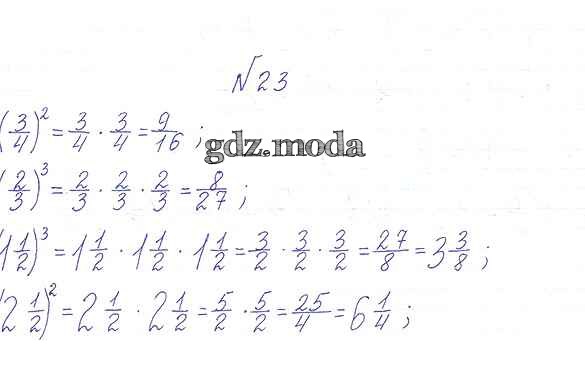 № 23
(3/4)² = 3/4 · 3/4 = 9/16 ;
gdz.moda
(2/3)³ = 2/3 · 2/3 · 2/3 = 8/27 ;
(1 1/2)³ = 1 1/2 · 1 1/2 · 1 1/2 = 3/2 · 3/2 · 3/2 = 27/8 = 3 3/8 ;
(2 1/2)² = 2 1/2 · 2 1/2 = 5/2 · 5/2 = 25/4 = 6 1/4 ;